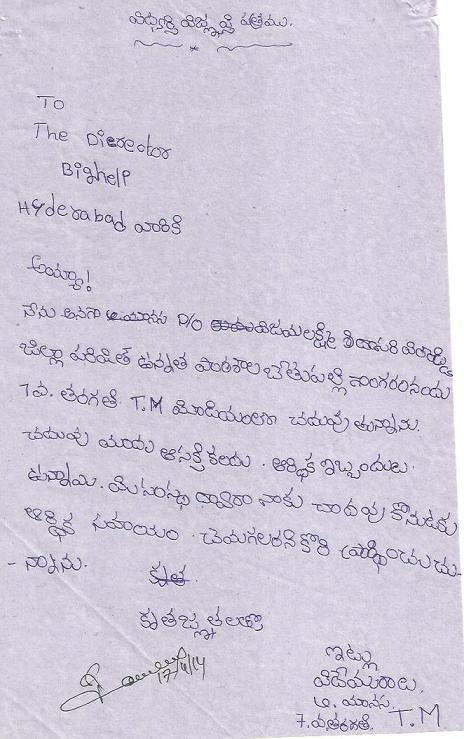 విద్యార్థి విజ్ఞప్తి పత్రము.
TO
The Dierector
Bighelp
Hyderabad వారికి
అయ్యా!
నేను అనగా మానస D/O విజయలక్ష్మి
జిల్లా పరిషత్ ఉన్నత పాఠశాల చేతుపల్లి
7వ. తరగతి T.M మీడియంలో చదువు తున్నాను.
చదువు మీద ఆసక్తి కలదు. ఆర్థిక ఇబ్బందులు.
ఉన్నాయి. మీ సంస్థ ద్వారా నాకు చదువు కొనుటకు
ఆర్థిక సహాయం. చేయగలరని కోరి ప్రార్థించుచు
- న్నాను.
కృతజ్ఞతలతో
17/4/14
ఇట్లు
విదేయురాలు.
మానస.
7.వతరగతి. T.M